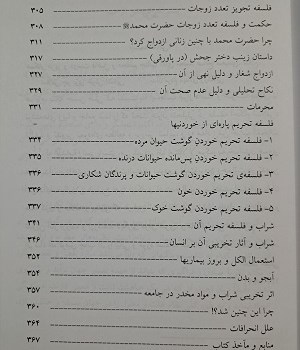 فلسفه تجویز تعدد زوجات ۳۰۵
حکمت و فلسفه تعدد زوجات حضرت محمدﷺ ۳۰۸
چرا حضرت محمد با چنین زنانی ازدواج کرد؟ ۳۱۱
داستان زینب دختر جحش (در پاورقی) ۳۱۷
ازدواج شغار و دلیل نهی از آن ۳۲۷
نکاح تحلیلی و دلیل عدم صحت آن ۳۲۹
محرمات ۳۳۱
فلسفه تحریم پاره‌ای از خوردنیها -
۱- فلسفه تحریم خوردن گوشت حیوان مرده ۳۳۴
۲- فلسفه تحریم خوردن پس‌مانده حیوانات درنده ۳۳۵
۳- فلسفه‌ی تحریم خوردن گوشت حیوانات و پرندگان شکاری ۳۳۶
۴- فلسفه تحریم خوردن خون ۳۳۶
۵- فلسفه تحریم خوردن گوشت خوک ۳۳۷
شراب و فلسفه تحریم آن ۳۴۱
شراب و آثار تخریبی آن بر انسان ۳۴۶
استعمال الکل و بروز بیماریها ۳۵۲
آبجو و بدن ۳۵۴
اثر تخریبی شراب و مواد مخدر در جامعه ۳۵۷
چرا این چنین شد؟! ۳۶۰
علل انحرافات ۳۶۴
منابع و مآخذ کتاب ۳۶۷